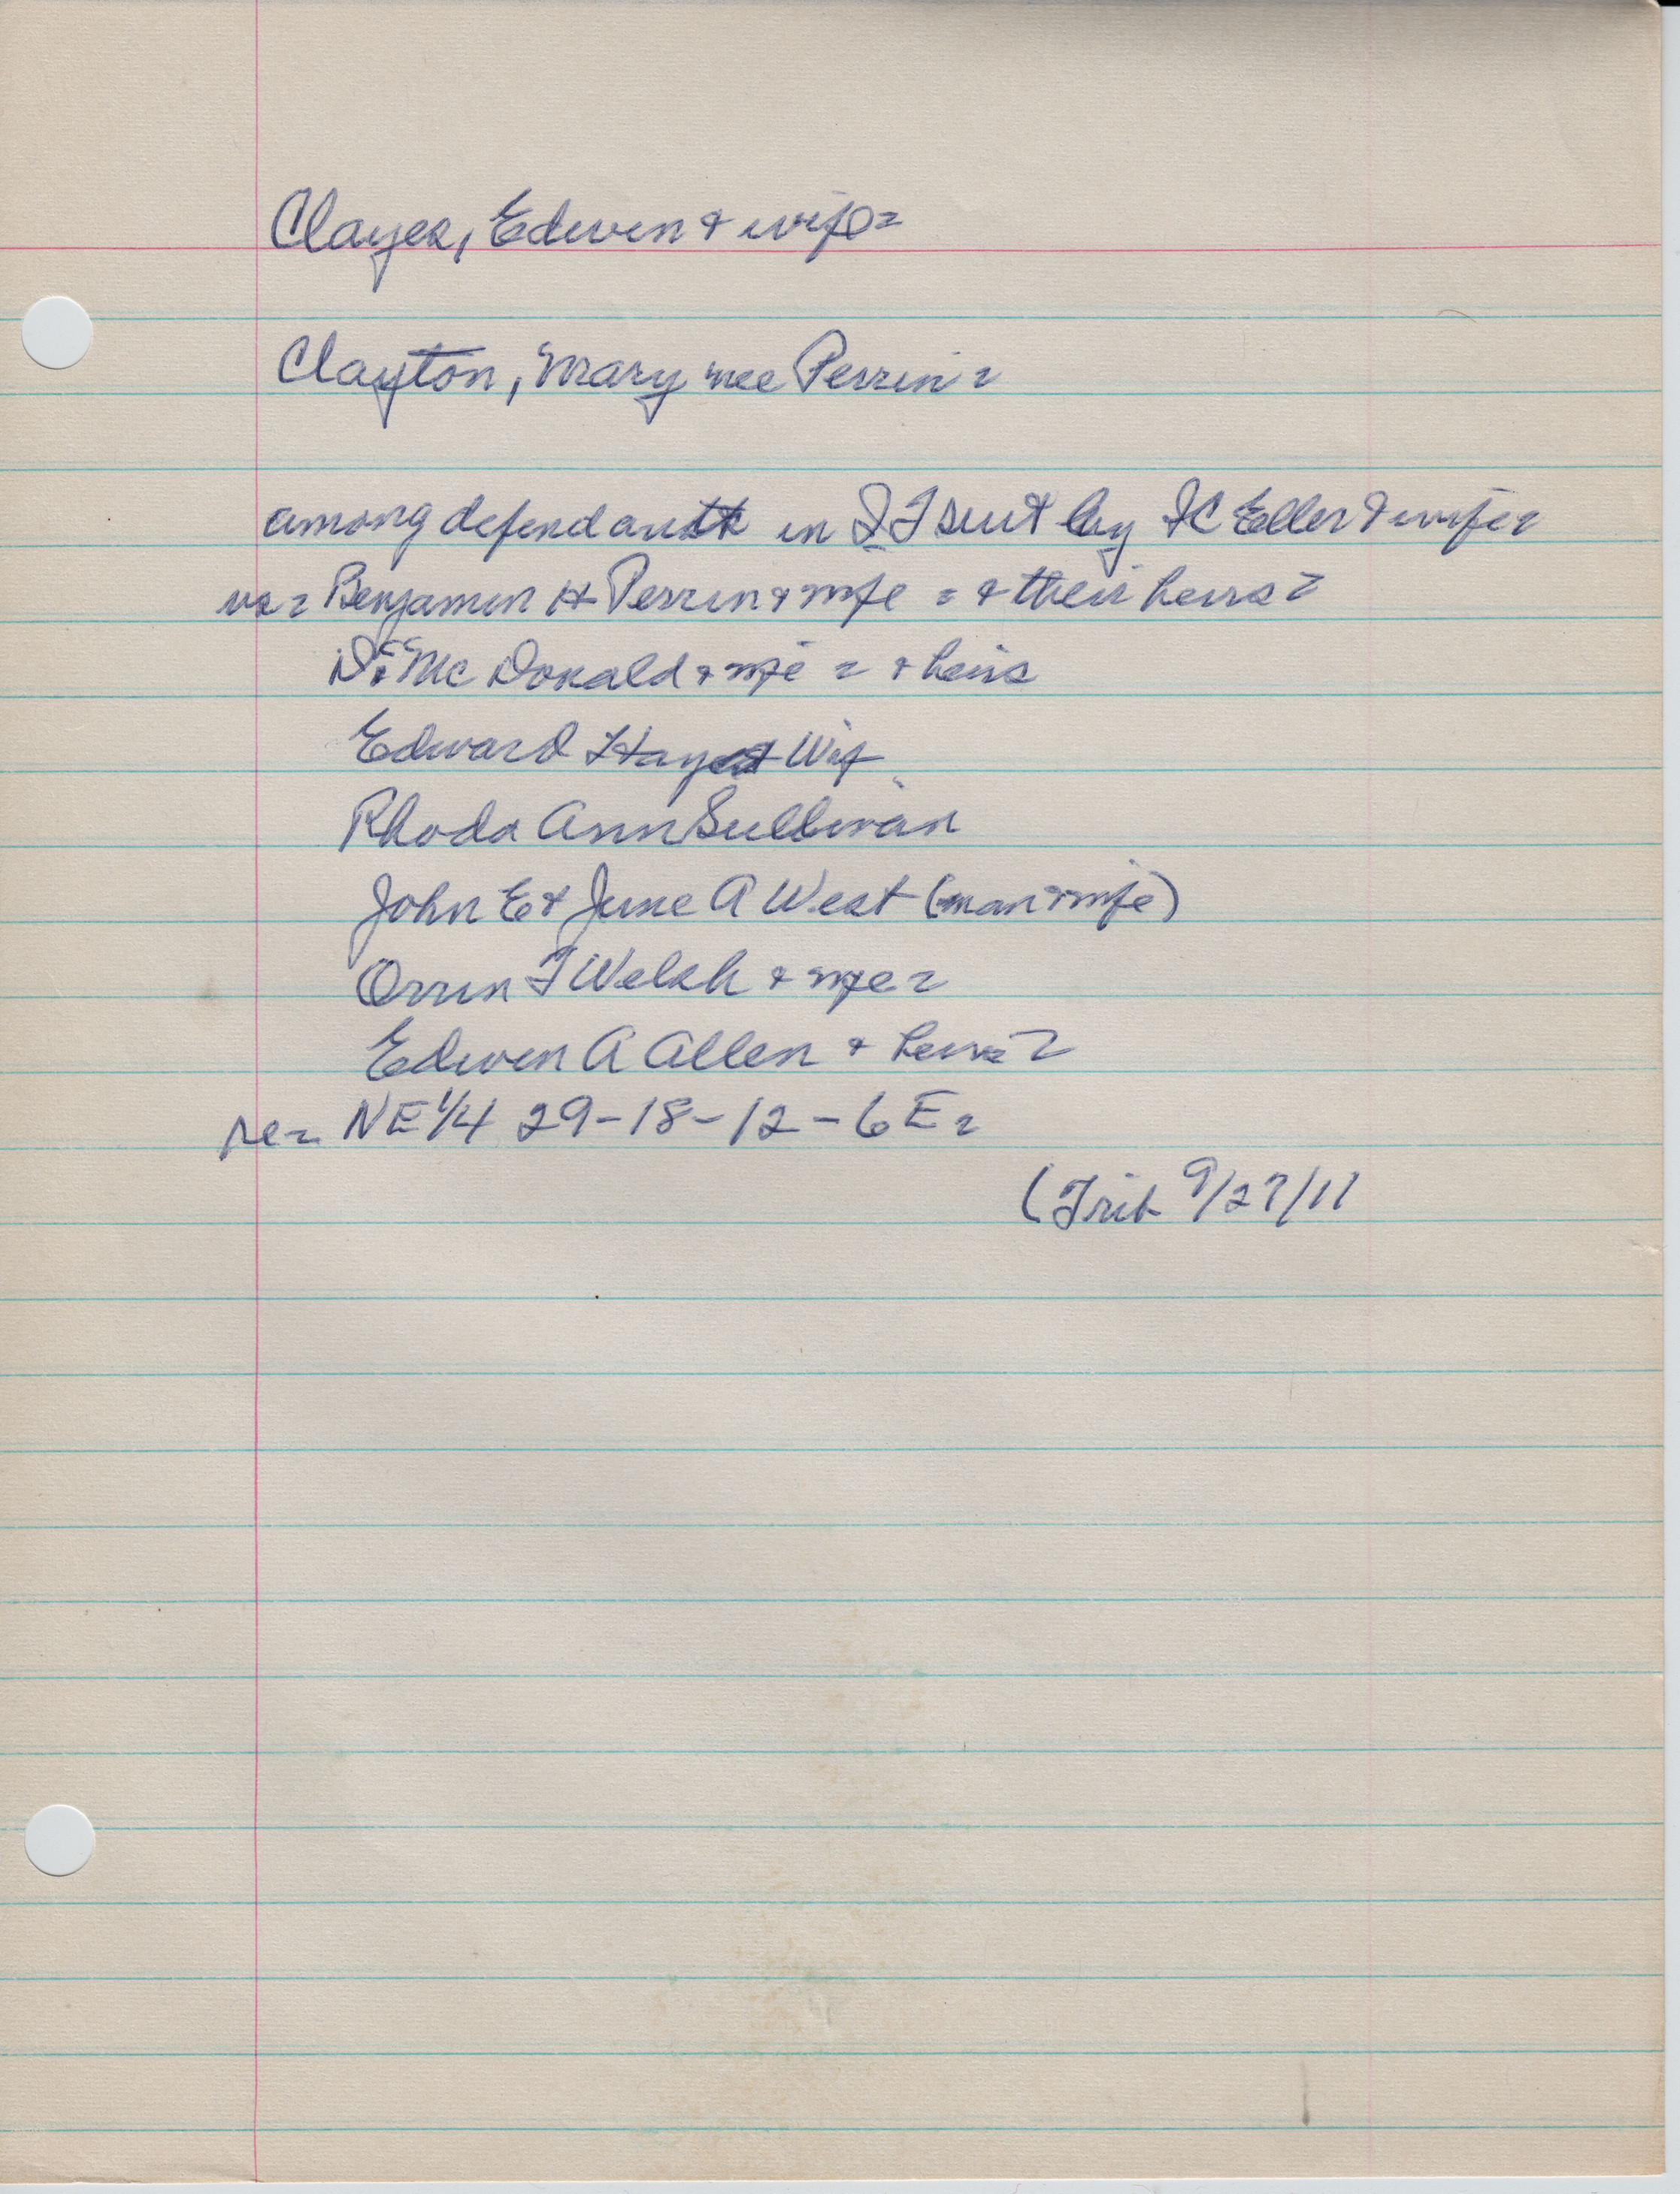 Clayes, Edwin & wife =
Clayton, Mary nee Perrin =
among defendants in suit by Eller & wife =
vs = Benjamin H Perrin & wife = & their heirs =
McDonald & wife = & heirs
Edward Hayes & Wif
Rhoda Ann Sullivan
John E & June A West (man & wife)
Orrin F Welsh & wife =
Edwin A Allen & heirs =
re = NE 1/4 29-18-12-6E =
(Trib 9/27/11